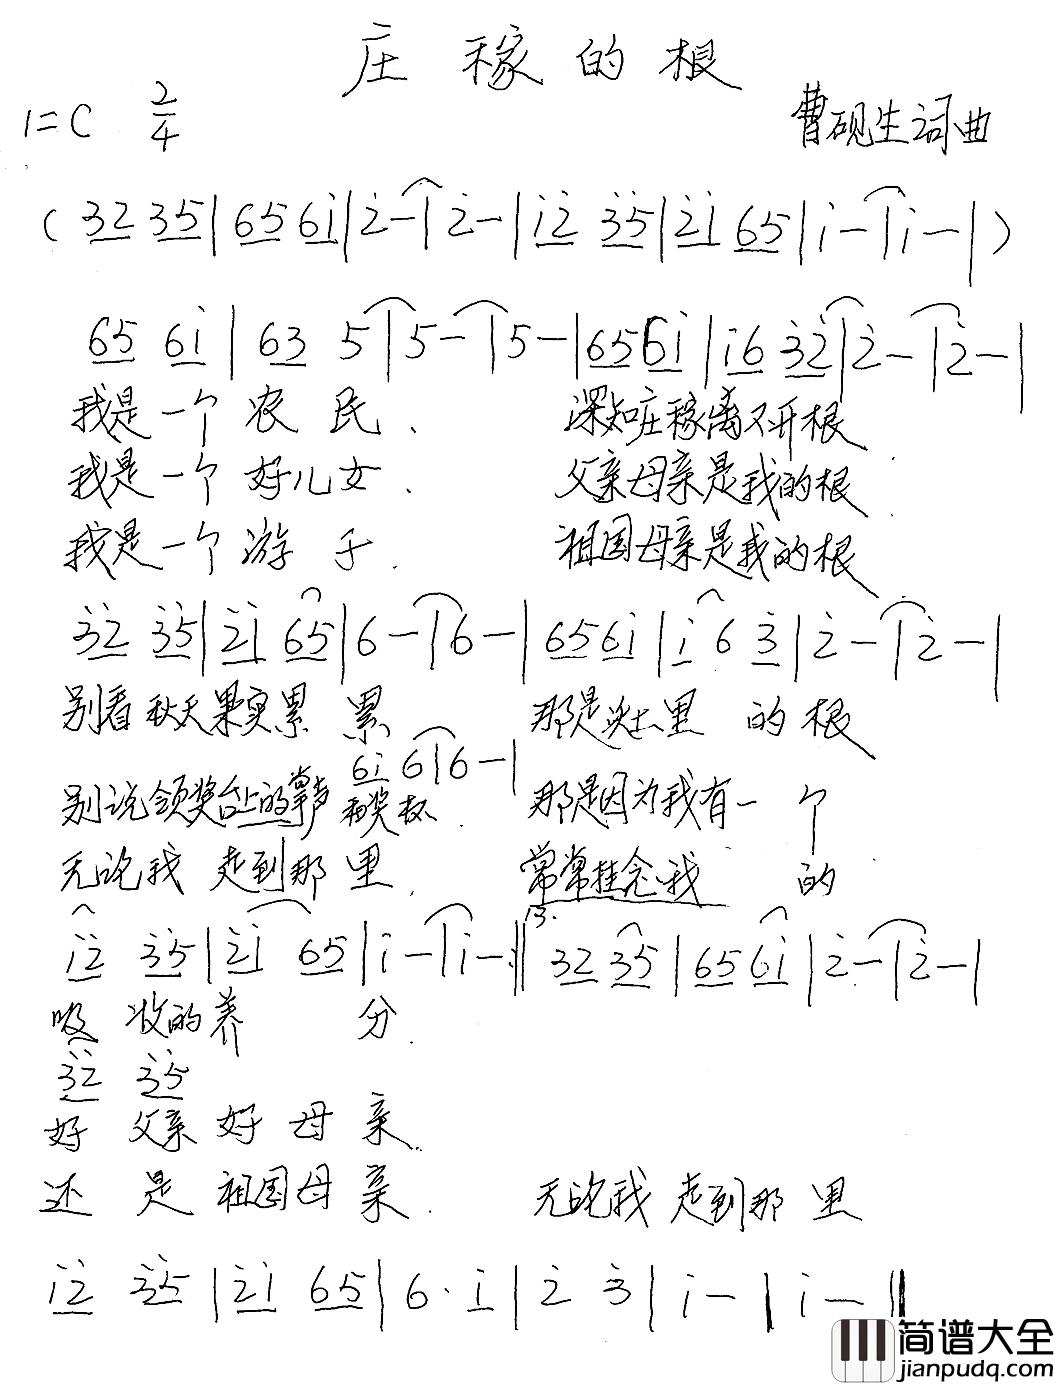 庄稼的根
1=C 2/4 曹砚生词曲
( 32 35 | 65 6i | 2̇ - | 2̇ - | i2̇ 3̇5̇ | 2̇i 65 | i - | i - | )
65 6i | 63 5 | 5 - | 5 - | 65 6i | i6 3̇2̇ | 2̇ - | 2̇ - |
我是一个农民. 深知庄稼离不开根
我是一个好儿女. 父亲母亲是我的根
我是一个游子. 祖国母亲是我的根
3̇2̇ 3̇5̇ | 2̇i 65 | 6 - | 6 - | 65 6i | i 6 3̇ | 2̇ - | 2̇ - |
别看秋天果实累累 那是 里的根
6i 6 | 6 - |
别说领奖台上的掌声和奖杯. 那是因为我有一个
无论我走到那里. 常常挂念我的
i2̇ 3̇5̇ | 2̇i 65 | i - | i - :‖ 13. 32 35 | 65 6i | 2̇ - | 2̇ - |
吸收的养分.
3̇2̇ 3̇5̇
好父亲好母亲.
还是祖国母亲. 无论我走到那里
i2̇ 3̇5̇ | 2̇i 65 | 6· i | 2̇ 3̇ | i - | i - ‖
简谱大全
jianpudq.com